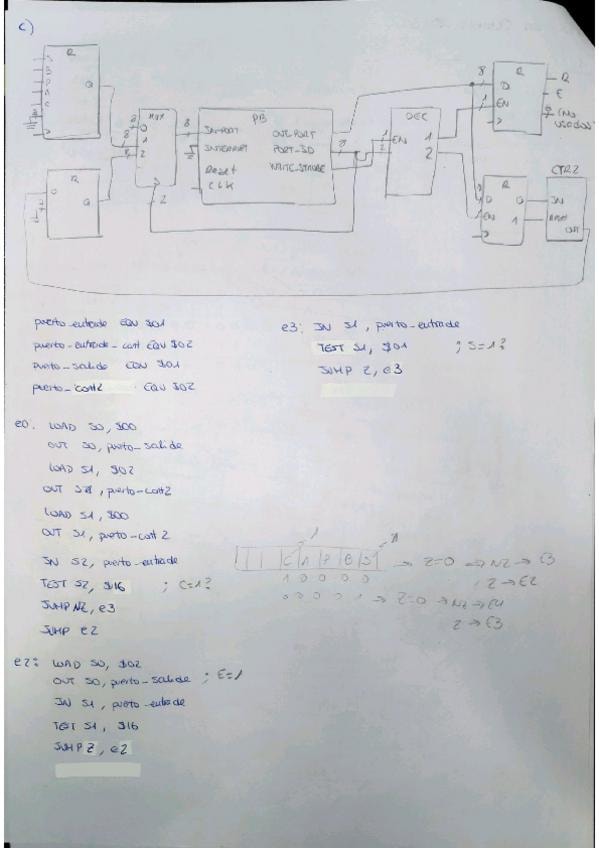 c)
R
Q
R
Q
MUX
0
1
2
2
8
PB
IN-PORT
INTERRUPT
Reset
CLK
OUT_PORT
PORT_ID
WRITE_STROBE
DEC
EN
1
2
8
R
D
EN
R
E
(No
usados)
R
D
EN
0
1
CTR2
IN
RESET
OUT
puerto-entrada EQU $01
puerto-entrada-cont EQU $02
puerto-salida EQU $01
puerto-cont2 EQU $02
e0: LOAD S0, $00
OUT S0, puerto-salida
LOAD S1, $02
OUT S1, puerto-cont2
LOAD S1, $00
OUT S1, puerto-cont2
IN S2, puerto-entrada
TEST S2, $16 ; C=1?
JUMP NZ, e3
JUMP e2
e2: LOAD S0, $02
OUT S0, puerto-salida ; E=1
IN S1, puerto-entrada
TEST S1, $16
JUMP Z, e2
e3: IN S1, puerto-entrada
TEST S1, $01 ; S=1?
JUMP Z, e3
C A P B S → Z=0 → NZ → E3
1 0 0 0 0 Z → E2
0 0 0 0 1 → Z=0 → NZ → E4
Z → E3